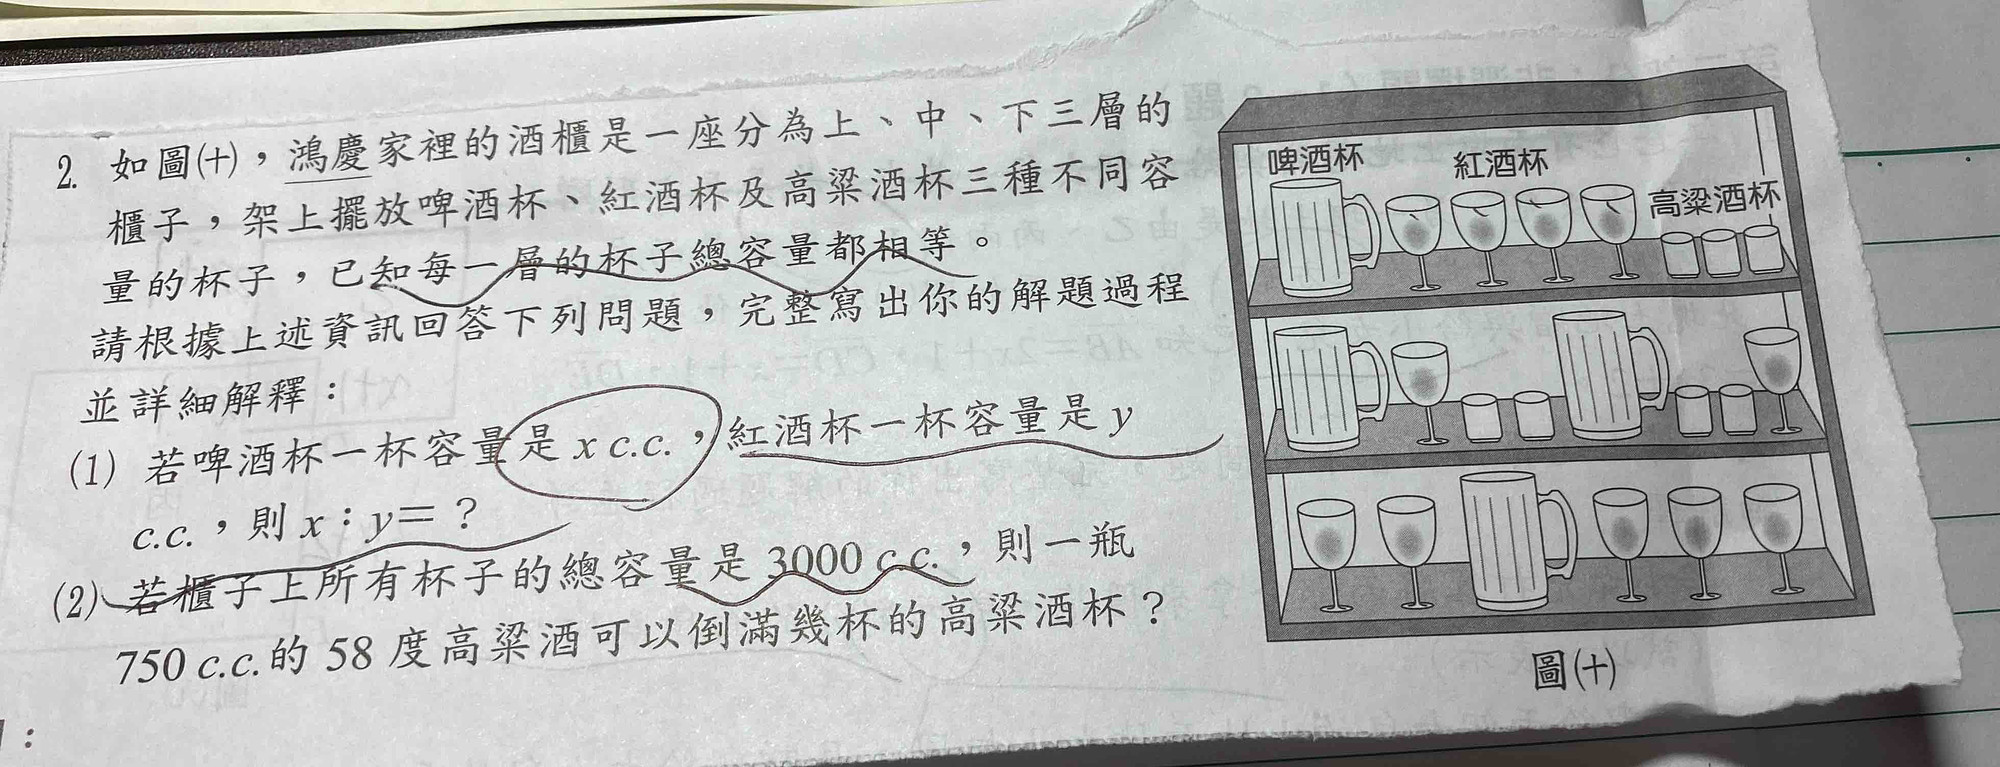 2. 如圖(十)，鴻慶家裡的酒櫃是一座分為上、中、下三層的
櫃子，架上擺放啤酒杯、紅酒杯及高粱酒杯三種不同容
量的杯子，已知每一層的杯子總容量都相等。
請根據上述資訊回答下列問題，完整寫出你的解題過程
並詳細解釋：
(1) 若啤酒杯一杯容量是 x c.c.，紅酒杯一杯容量是 y
c.c.，則 x：y＝？
(2) 若櫃子上所有杯子的總容量是 3000 c.c.，則一瓶
750 c.c.的 58 度高粱酒可以倒滿幾杯的高粱酒杯？
啤酒杯
紅酒杯
高粱酒杯
圖(十)